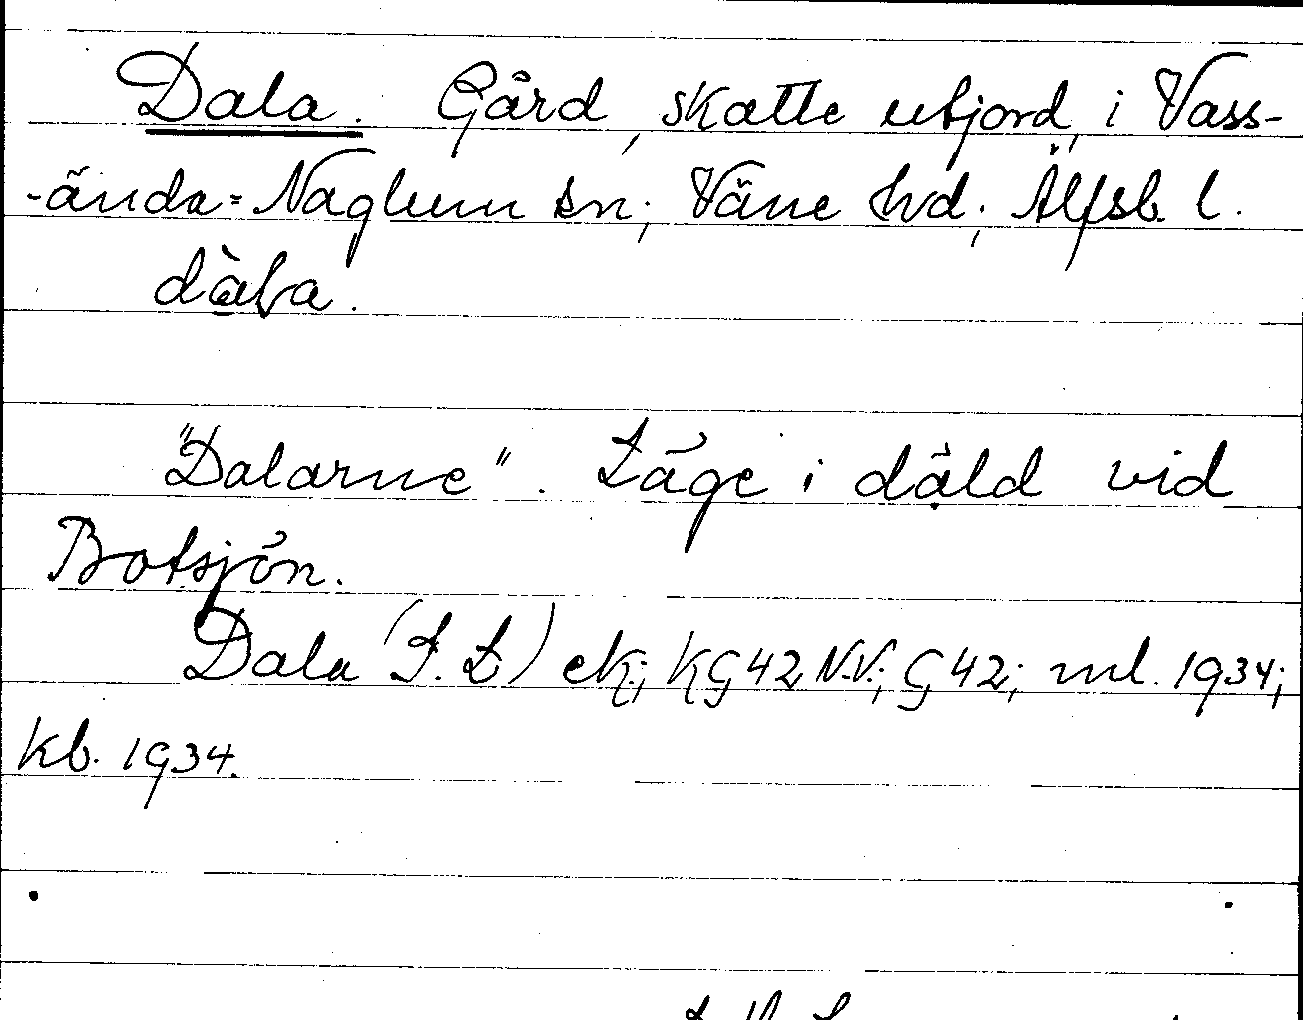 Dala. Gård, skatte utjord, i Vass-
-ända-Naglum sn; Väne hd; Älfsb. l.
dàla.
"Dalarne". Läge i däld vid
Botsjön.
Dala (S. L) ek; KG 42 N.V.; G 42; ml. 1934;
kb. 1934.